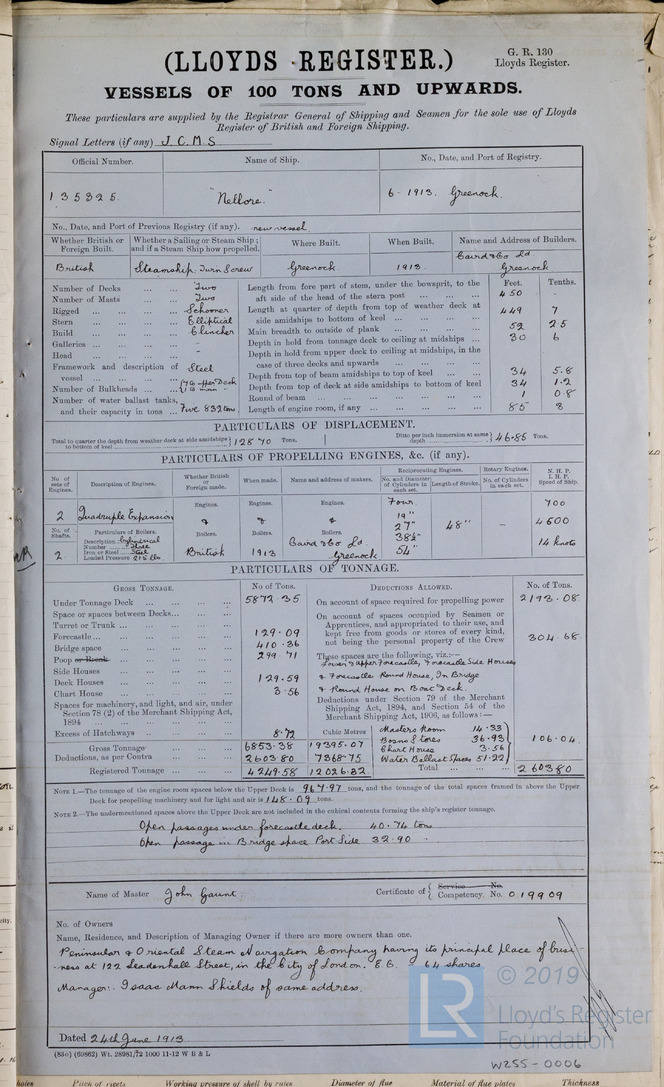 (LLOYDS REGISTER.)
G. R. 130
Lloyds Register.
VESSELS OF 100 TONS AND UPWARDS.
These particulars are supplied by the Registrar General of Shipping and Seamen for the sole use of Lloyds
Register of British and Foreign Shipping.
Signal Letters (if any) J. C. M. S
Official Number. Name of Ship. No., Date, and Port of Registry.
135325. "Nellore." 6 - 1913. Greenock.
No., Date, and Port of Previous Registry (if any). new vessel
Whether British or Foreign Built. Whether a Sailing or Steam Ship; and if a Steam Ship how propelled. Where Built. When Built. Name and Address of Builders.
British Steamship. Twin Screw Greenock 1913. Caird & Co Ld. Greenock
Number of Decks ... ... Two
Number of Masts ... ... Two
Rigged ... ... ... ... Schooner
Stern ... ... ... ... Elliptical
Build ... ... ... ... Clincher
Galleries ... ... ... ... -
Head ... ... ... ... -
Framework and description of vessel ... ... ... ... Steel
Number of Bulkheads ... upper Deck
Number of water ballast tanks, and their capacity in tons ... Five 832 tons
Feet. Tenths.
Length from fore part of stem, under the bowsprit, to the
aft side of the head of the stern post ... ... ... 450 -
Length at quarter of depth from top of weather deck at
side amidships to bottom of keel ... ... ... 449 7
Main breadth to outside of plank ... ... ... 52 25
Depth in hold from tonnage deck to ceiling at midships ... 30 6
Depth in hold from upper deck to ceiling at midships, in the
case of three decks and upwards ... ... ...
Depth from top of beam amidships to top of keel ... ... 34 5.8
Depth from top of deck at side amidships to bottom of keel 34 1.2
Round of beam ... ... ... ... 1 0.8
Length of engine room, if any ... ... ... ... 85 8
PARTICULARS OF DISPLACEMENT.
Total to quarter the depth from weather deck at side amidships to bottom of keel 12870 Tons. Ditto per inch immersion at same depth 46.85 Tons.
PARTICULARS OF PROPELLING ENGINES, &c. (if any).
No of sets of Engines. Description of Engines. Whether British or Foreign made. When made. Name and address of makers. Reciprocating Engines. Rotary Engines. N. H. P. I. H. P. Speed of Ship.
No. and Diameter of Cylinders in each set. Length of Stroke. No. of Cylinders in each set.
Engines. Engines. Engines. Four 700
2 Quadruple Expansion & & & 19" 27" 48" - 4600
No. of Shafts. Particulars of Boilers. Boilers. Boilers. Boilers. 38½"
Description Cylindrical
Number
Iron or Steel Steel
Loaded Pressure 215 lbs.
2 British 1913 Caird & Co Ld. Greenock 54" 14 knots
PARTICULARS OF TONNAGE.
GROSS TONNAGE. No of Tons. DEDUCTIONS ALLOWED. No. of Tons.
Under Tonnage Deck ... ... ... ... 5872.35
Space or spaces between Decks... ... ...
Turret or Trunk ... ... ... ...
Forecastle... ... ... ... ... 129.09
Bridge space ... ... ... ... 410.36
Poop or Break ... ... ... ... 299.71
Side Houses ... ... ... ...
Deck Houses ... ... ... ... 129.59
Chart House ... ... ... ... 3.56
Spaces for machinery, and light, and air, under
Section 78 (2) of the Merchant Shipping Act,
1894 ... ... ... ...
Excess of Hatchways ... ... 8.72
Cubic Metres
Gross Tonnage 6853.38 19395.07
Deductions, as per Contra ... ... 2603.80 7368.75
Registered Tonnage ... ... 4249.58 12026.32
On account of space required for propelling power 2193.08
On account of spaces occupied by Seamen or
Apprentices, and appropriated to their use, and
kept free from goods or stores of every kind,
not being the personal property of the Crew 304.68
These spaces are the following, viz.:—
Lower & upper Forecastle, Forecastle Side Houses
& Forecastle Round House, In Bridge
& Round House on Boat Deck.
Deductions under Section 79 of the Merchant
Shipping Act, 1894, and Section 54 of the
Merchant Shipping Act, 1906, as follows:—
Masters Room 14.33
Bosns Stores 36.93
Chart House 3.56
Water Ballast Spaces 51.22 106.04
Total ... ... ... 2603.80
NOTE 1.—The tonnage of the engine room spaces below the Upper Deck is 967.97 tons, and the tonnage of the total spaces framed in above the Upper
Deck for propelling machinery and for light and air is 148.09 tons.
NOTE 2.—The undermentioned spaces above the Upper Deck are not included in the cubical contents forming the ship's register tonnage.
Open passages under forecastle deck. 40.74 tons
Open passage in Bridge space Port Side 32.90 "
Name of Master John Gaunt Certificate of { Service No. Competency. No. 019909
No. of Owners
Name, Residence, and Description of Managing Owner if there are more owners than one.
Peninsular & Oriental Steam Navigation Company having its principal place of busi-
-ness at 122 Leadenhall Street, in the City of London. E.C. 64 shares.
Manager: Isaac Mann Shields of same address.
© 2019
LR
Lloyd's Register
Foundation
Dated 24th June 1913
(83o) (69862) Wt. 28981/72 1000 11-12 W B & L
W255-0006
holes Pitch of rivets Working pressure of shell by rules Diameter of flue Material of flue plates Thickness